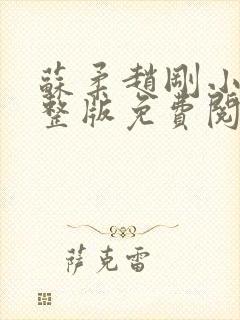 蘇柔趙剛小
整版免費閱
萨克雷